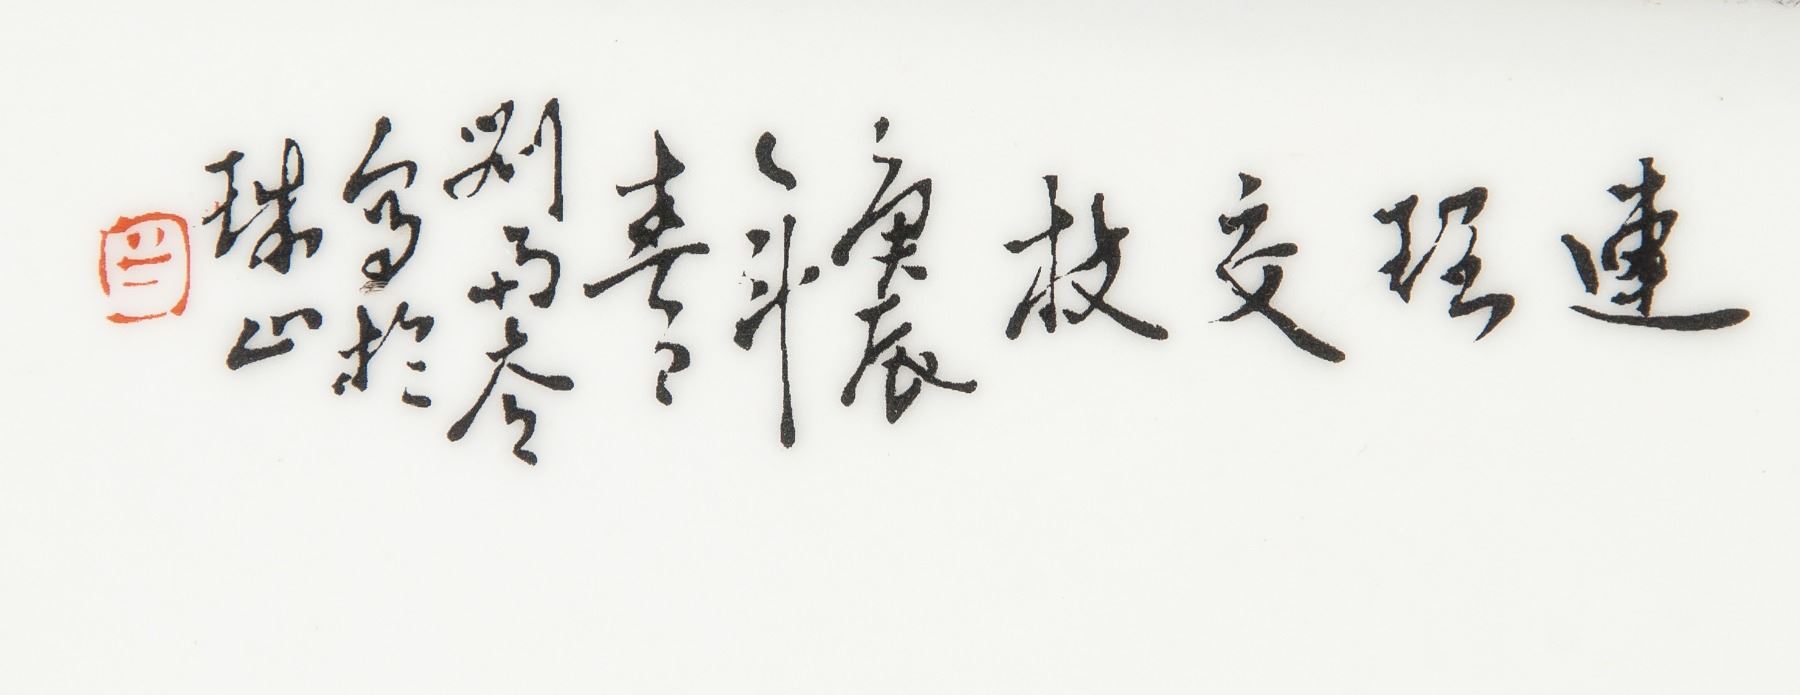 連理交枝
庚辰
春月
劉雨岑
寫於
珠山